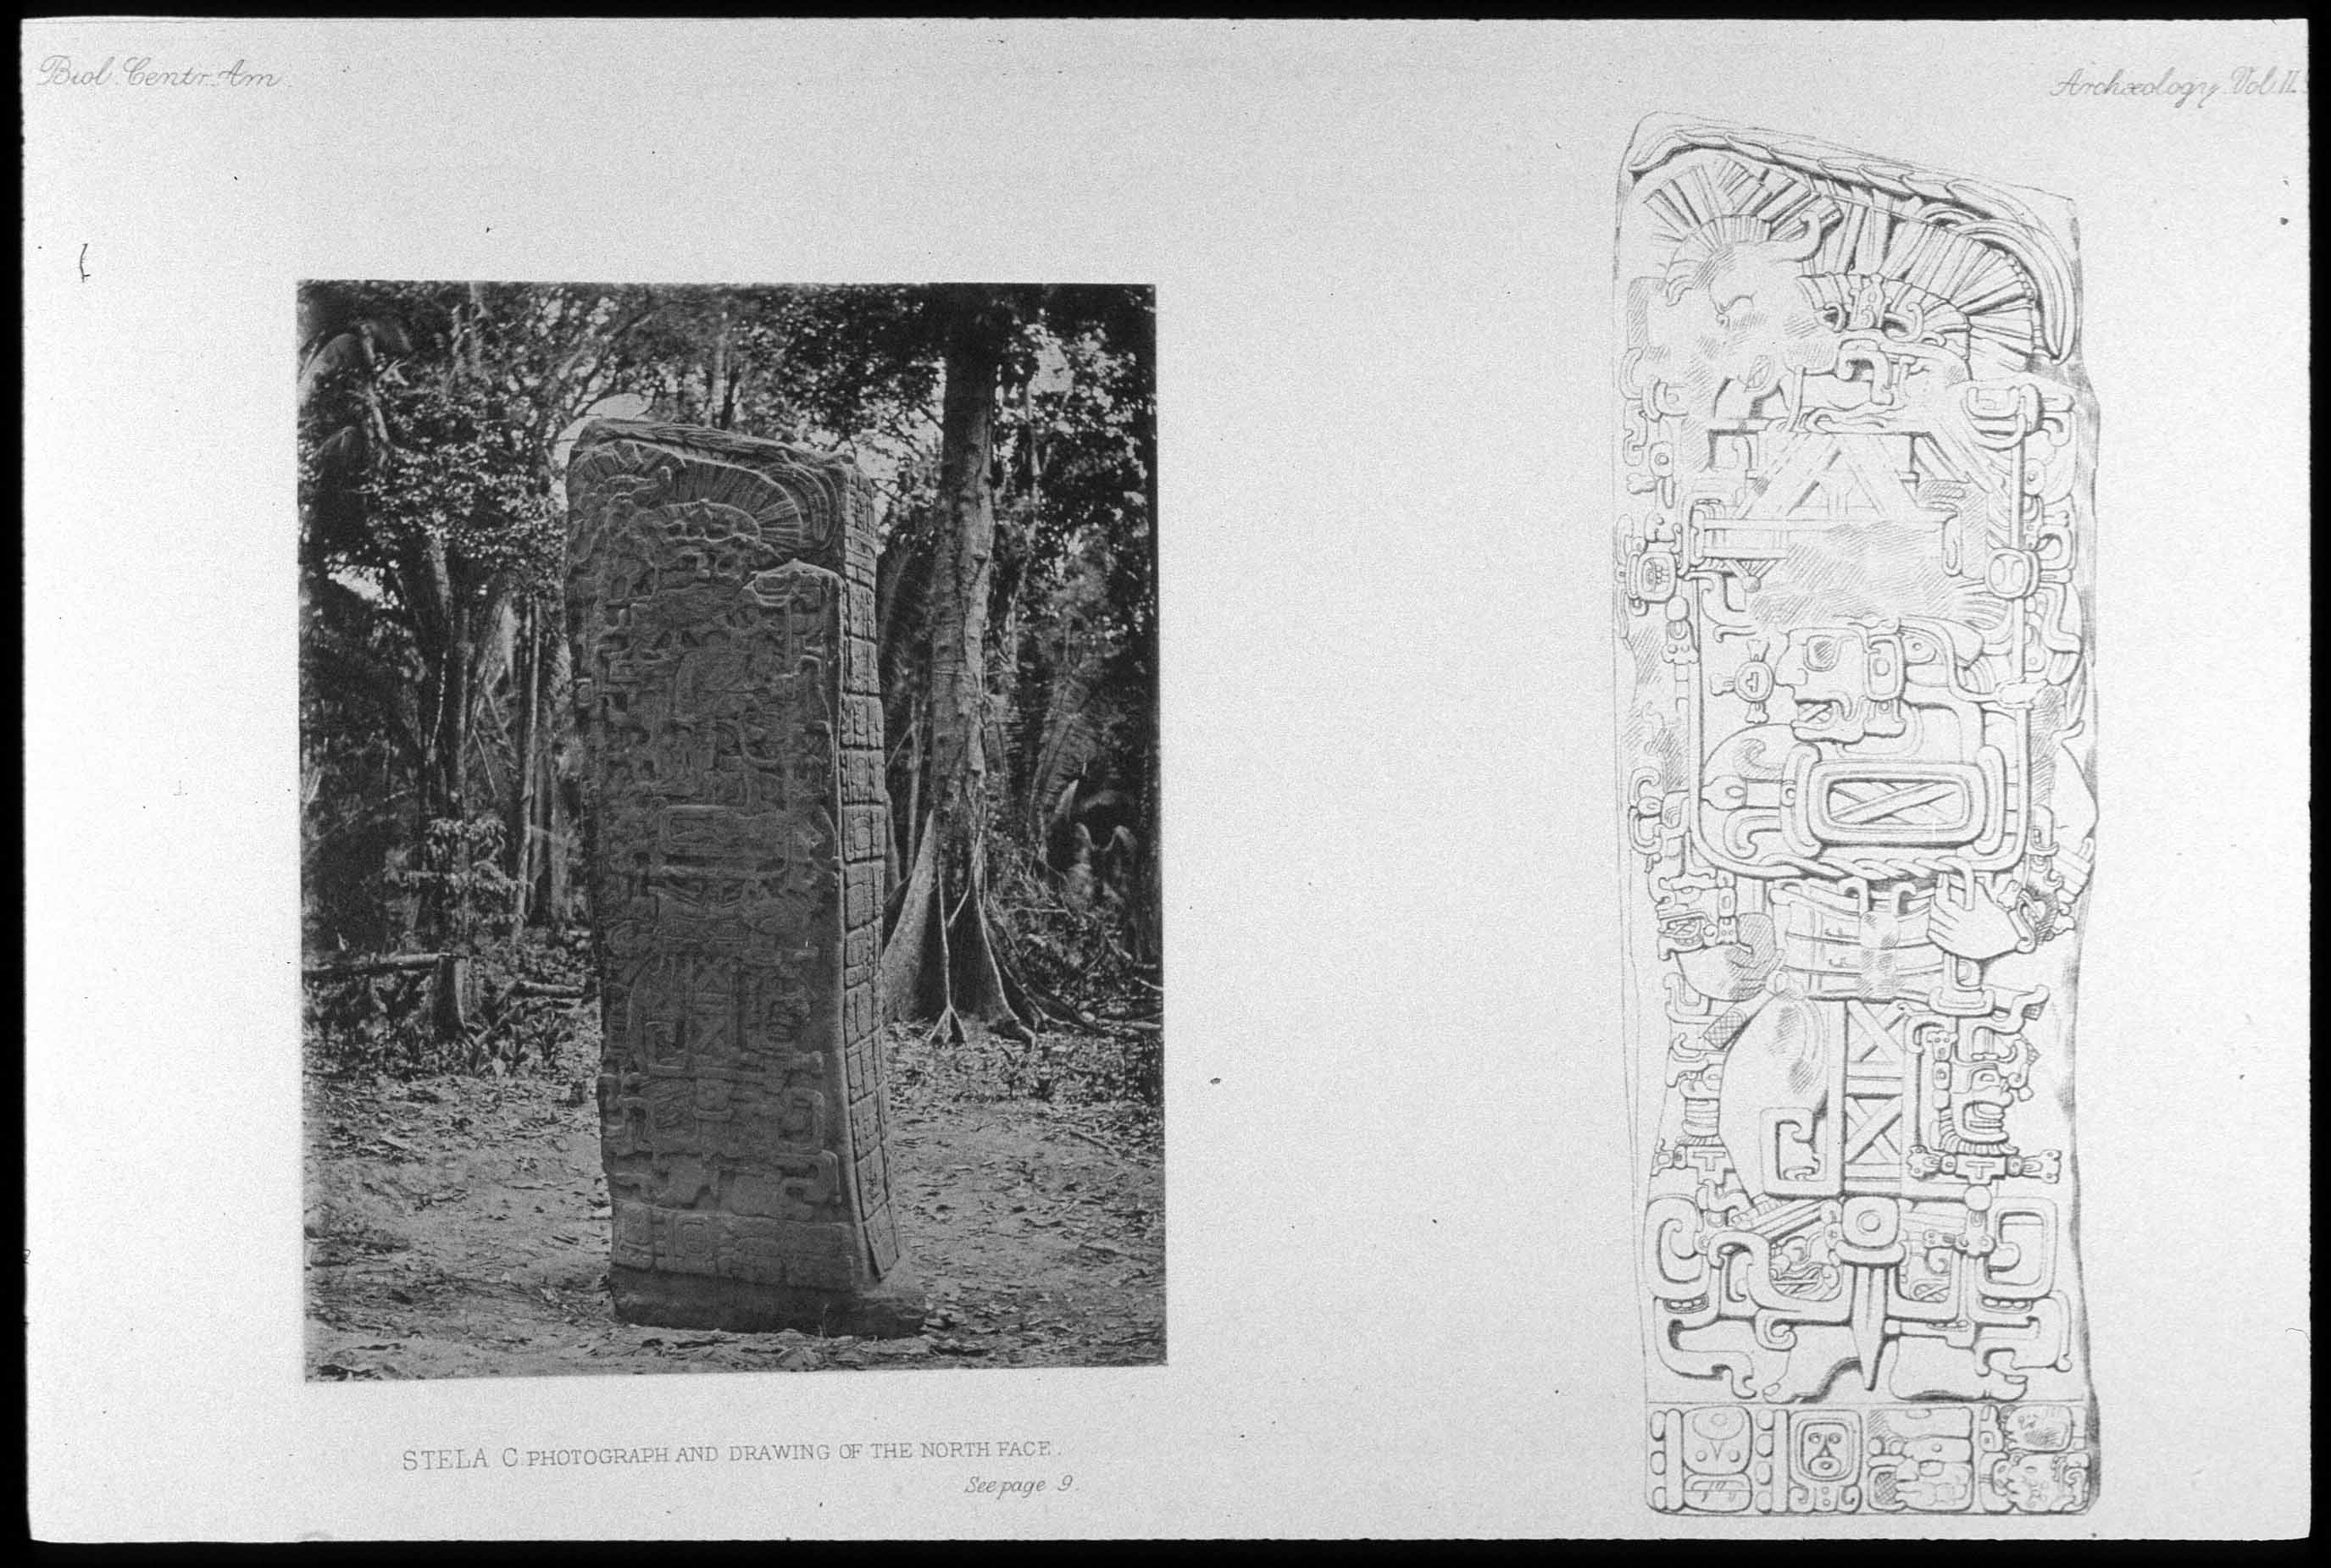 Biol. Centr. Am.
Archæology. Vol. II.
STELA C. PHOTOGRAPH AND DRAWING OF THE NORTH FACE.
See page 9.